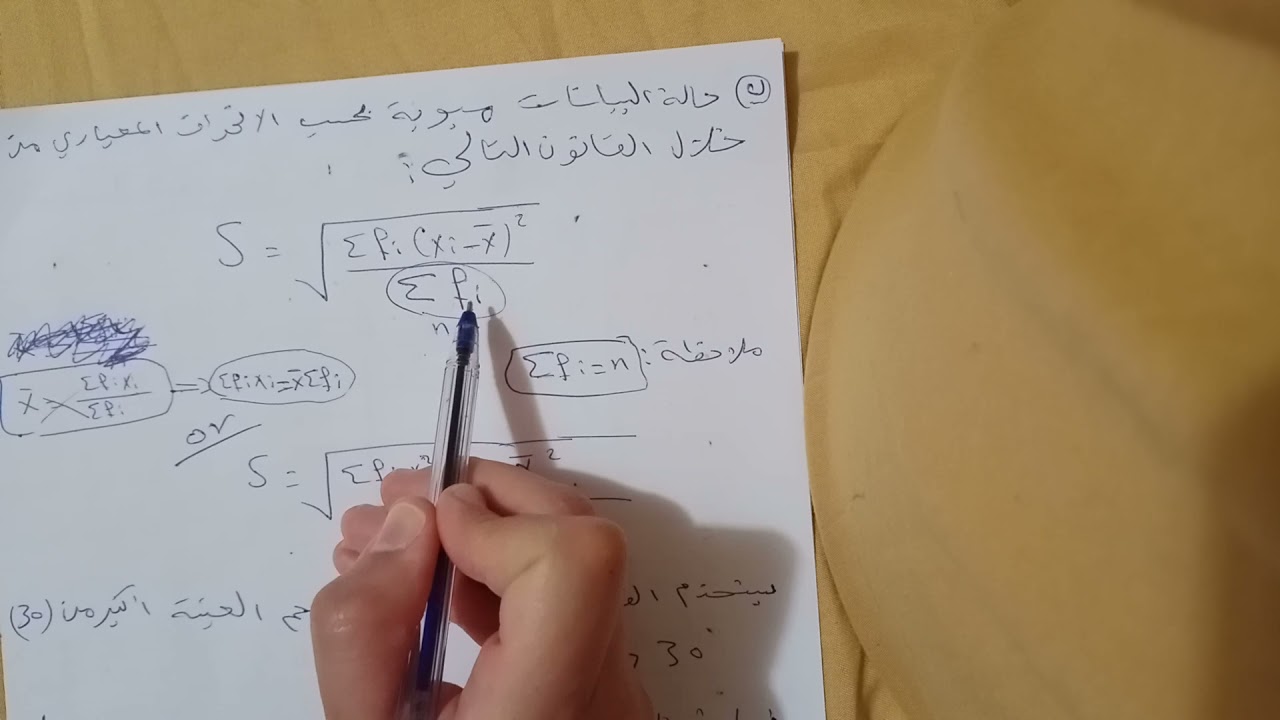 حالة البيانات مبوبة بحسب الانحراف المعياري من
خلال القانون التالي:
S = √(Σfi (xi - x̄)² / Σfi)
n
ملاحظة: Σfi = n
x̄ = Σfixi / Σfi => Σfixi = x̄Σfi
or
S = √ Σfi x²
يستخدم
العينة اكبر من (30)
30